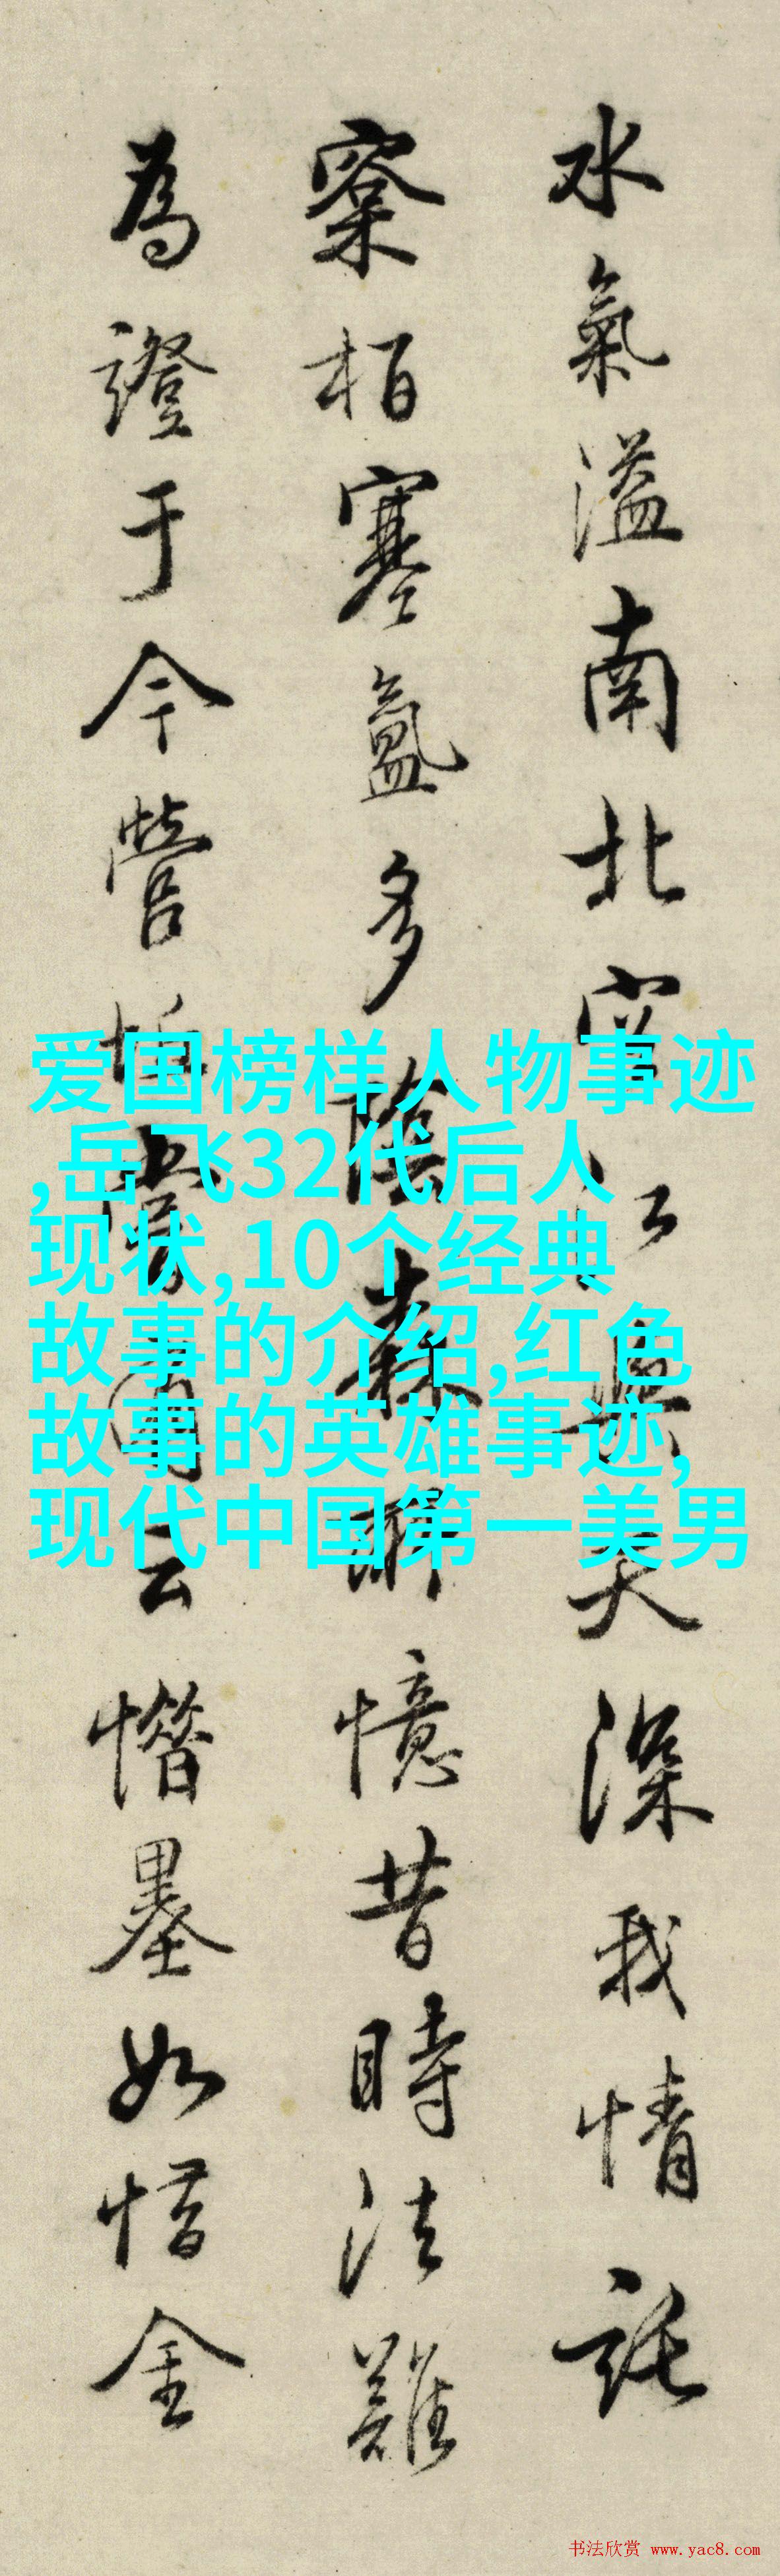 水氣溢南北宮江與天深我情託
寀栢塞氳多陰森聊憶昔時法難
為證于今營城當圍云惜墨如惜金
爱国榜样人物事迹
,岳飞32代后人
现状,10个经典
故事的介绍,红色
故事的英雄事迹,
现代中国第一美男
书法欣赏 www.yac8.com